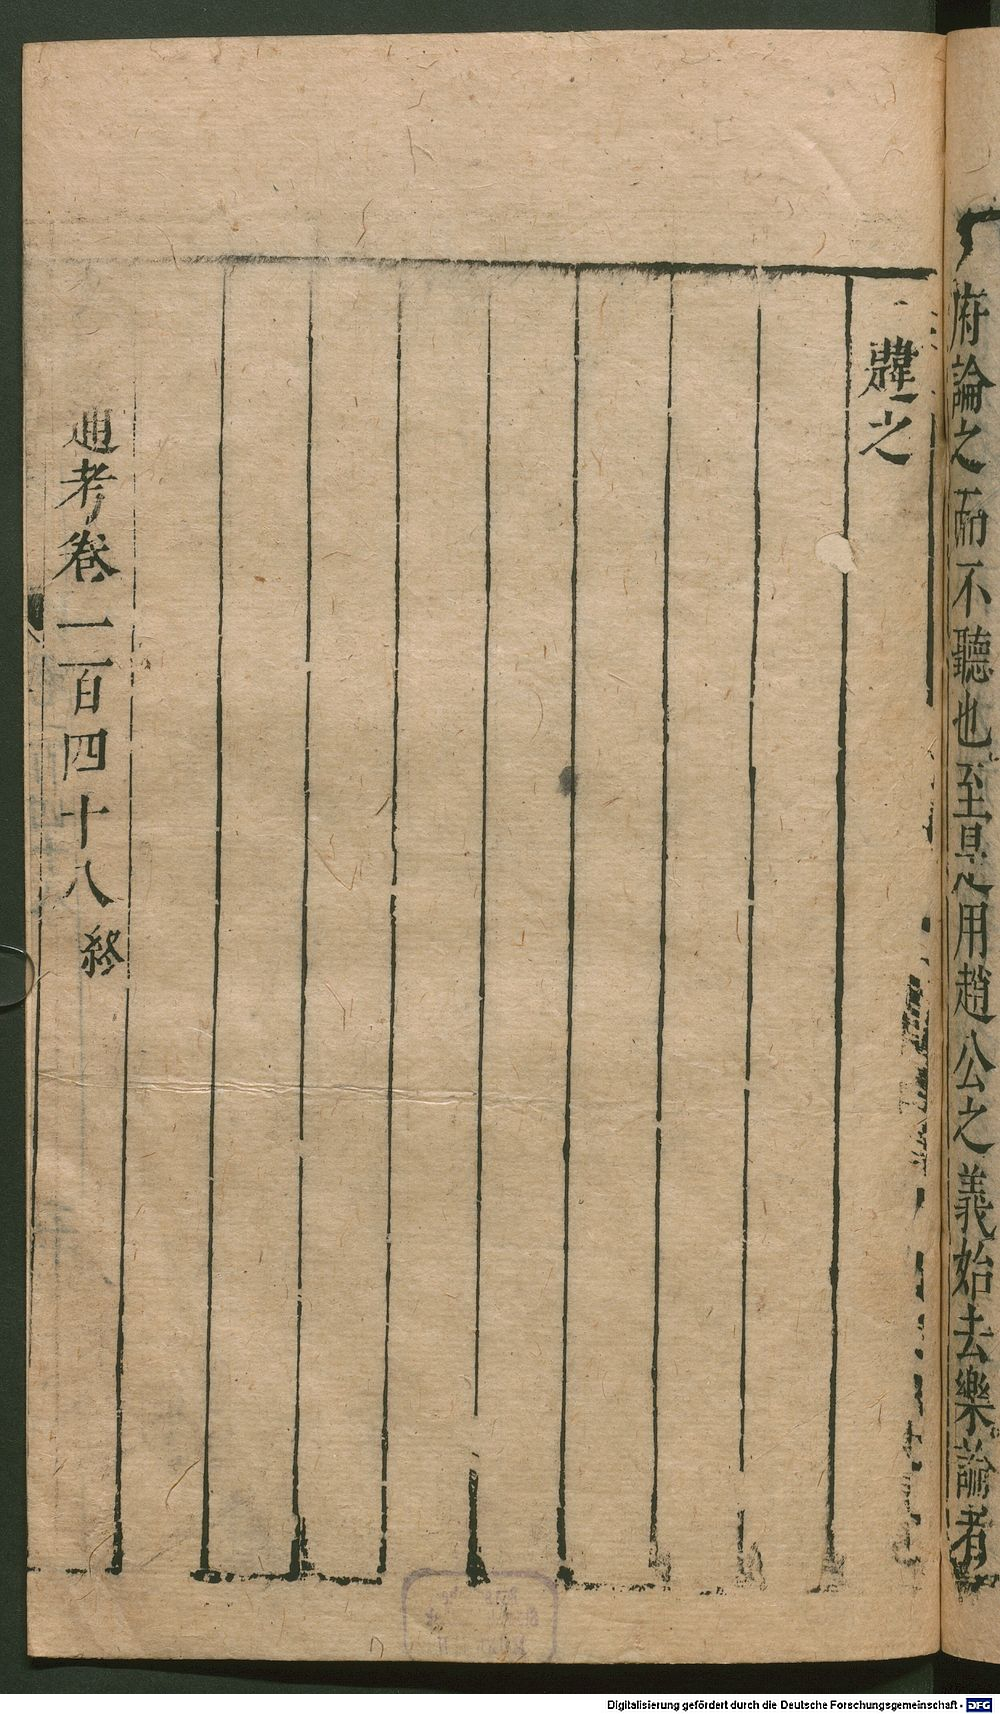 府論之而不聽也至是用趙公之義始去樂論者
韙之
通考卷一百四十八終
Digitalisierung gefördert durch die Deutsche Forschungsgemeinschaft - DFG